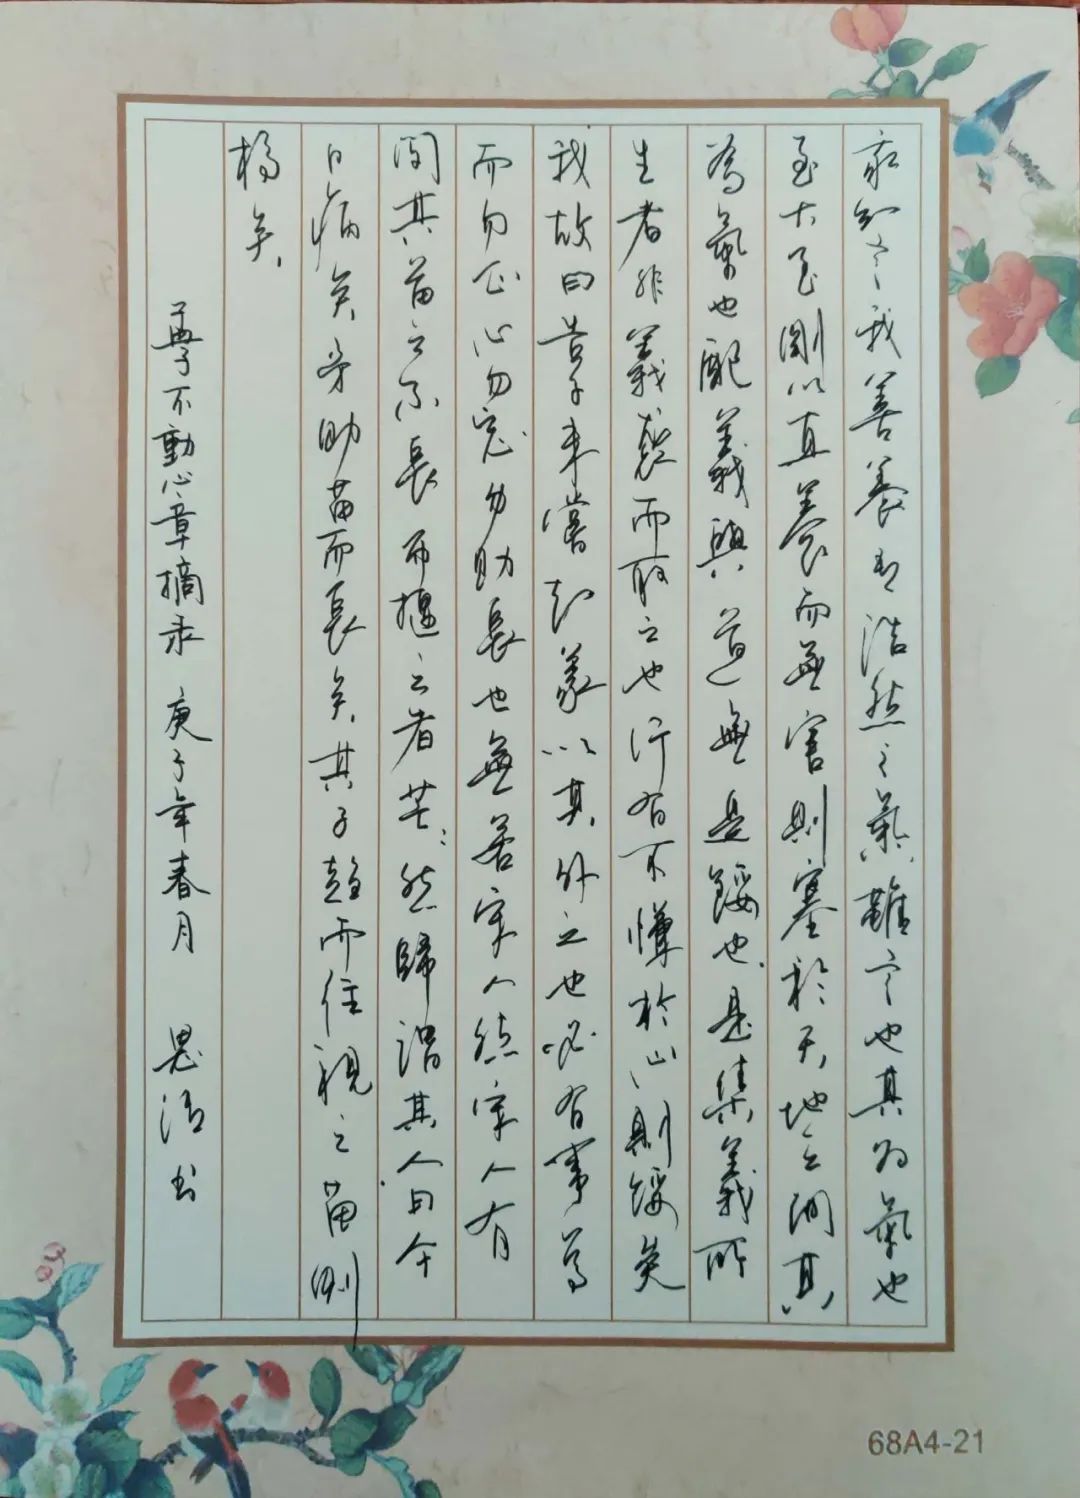 我知言我善養吾浩然之氣難言也其為氣也
至大至剛以直養而無害則塞於天地之間其
為氣也配義與道無是餒也是集義所
生者非義襲而取之也行有不慊於心則餒矣
我故曰告子未嘗知義以其外之也必有事焉
而勿正心勿忘勿助長也無若宋人然宋人有
閔其苗之不長而揠之者芒芒然歸謂其人曰今
日病矣予助苗而長矣其子趨而往視之苗則
槁矣
孟子不動心章摘录 庚子年春月 書
68A4-21